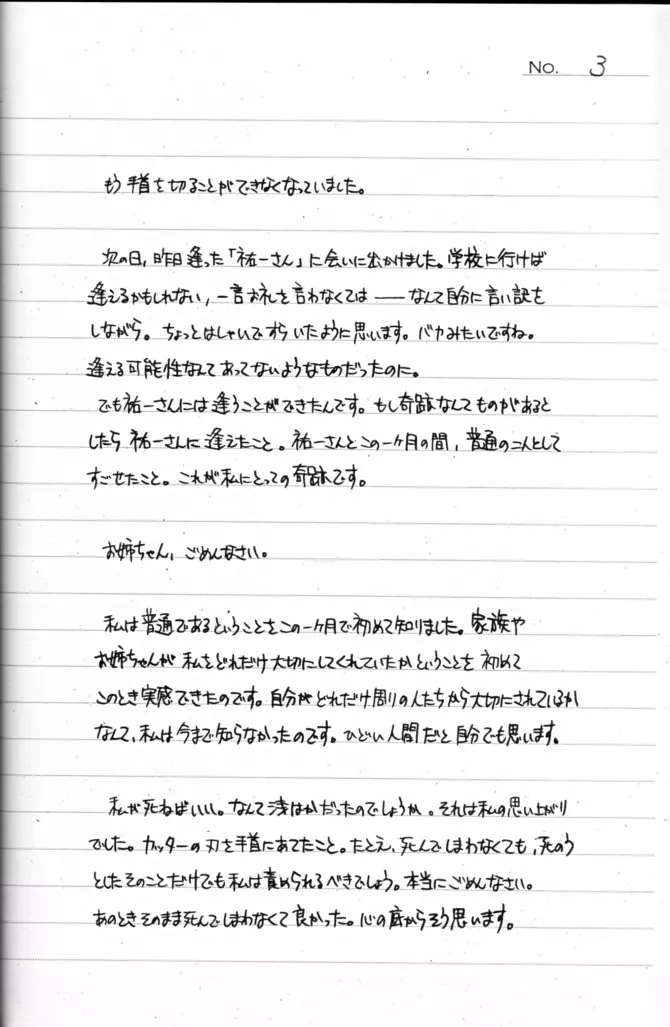 No. 3
もう手首を切ることができなくなっていました。
次の日、昨日逢った「祐一さん」に会いに出かけました。学校に行けば
逢えるかもしれない、一言お礼を言わなくては――なんて自分に言い訳を
しながら。ちょっとはしゃいですらいたように思います。バカみたいですね。
逢える可能性なんてあってないようなものだったのに。
でも祐一さんには逢うことができたんです。もし奇跡なんてものがあると
したら祐一さんに逢えたこと。祐一さんとこの一ヶ月の間、普通の二人として
すごせたこと。これが私にとっての奇跡です。
お姉ちゃん、ごめんなさい。
私は普通であるということをこの一ヶ月で初めて知りました。家族や
お姉ちゃんが私をどれだけ大切にしてくれていたかということを初めて
このとき実感できたのです。自分がどれだけ周りの人たちから大切にされているか
なんて、私は今まで知らなかったのです。ひどい人間だと自分でも思います。
私が死ねばいい。なんて浅はかだったのでしょうか。それは私の思い上がり
でした。カッターの刃を手首にあてたこと。たとえ、死んでしまわなくても、死のう
としたそのことだけでも私は責められるべきでしょう。本当にごめんなさい。
あのときそのまま死んでしまわなくて良かった。心の底からそう思います。